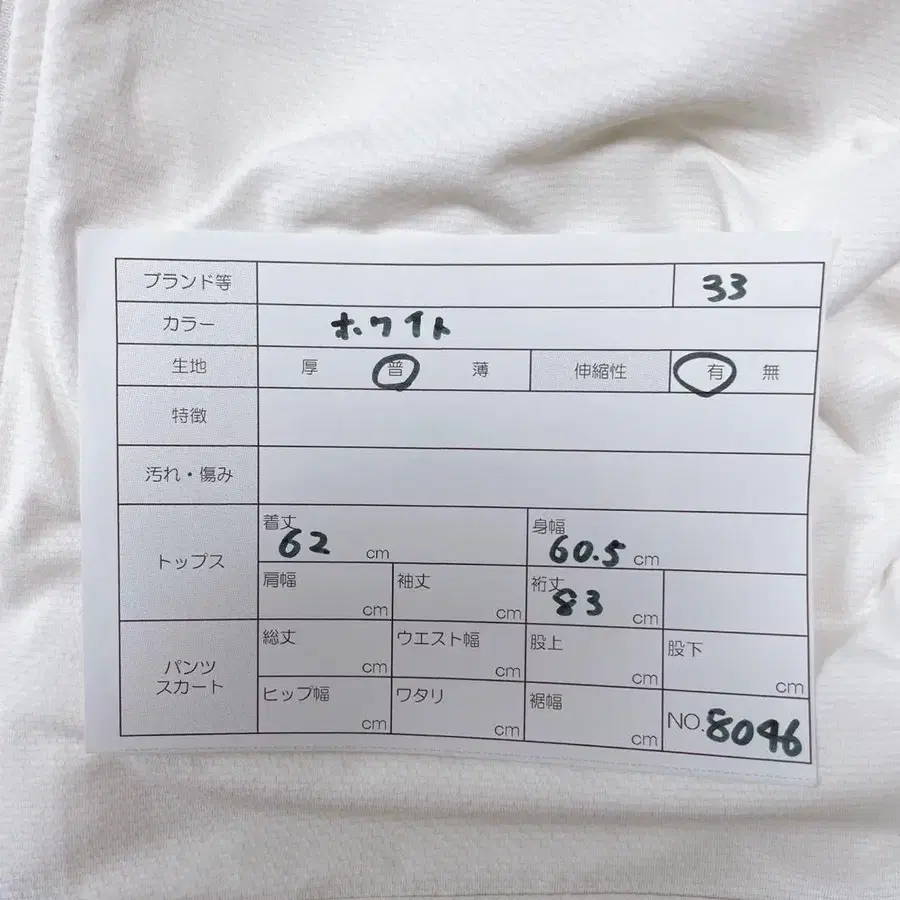 ブランド等 33
カラー ホワイト
生地 厚 普 薄 伸縮性 有 無
特徴
汚れ・傷み
トップス
着丈 62 cm 身幅 60.5 cm
肩幅 cm 袖丈 cm 裄丈 83 cm
パンツ
スカート
総丈 cm ウエスト幅 cm 股上 cm 股下 cm
ヒップ幅 cm ワタリ cm 裾幅 cm NO.8046